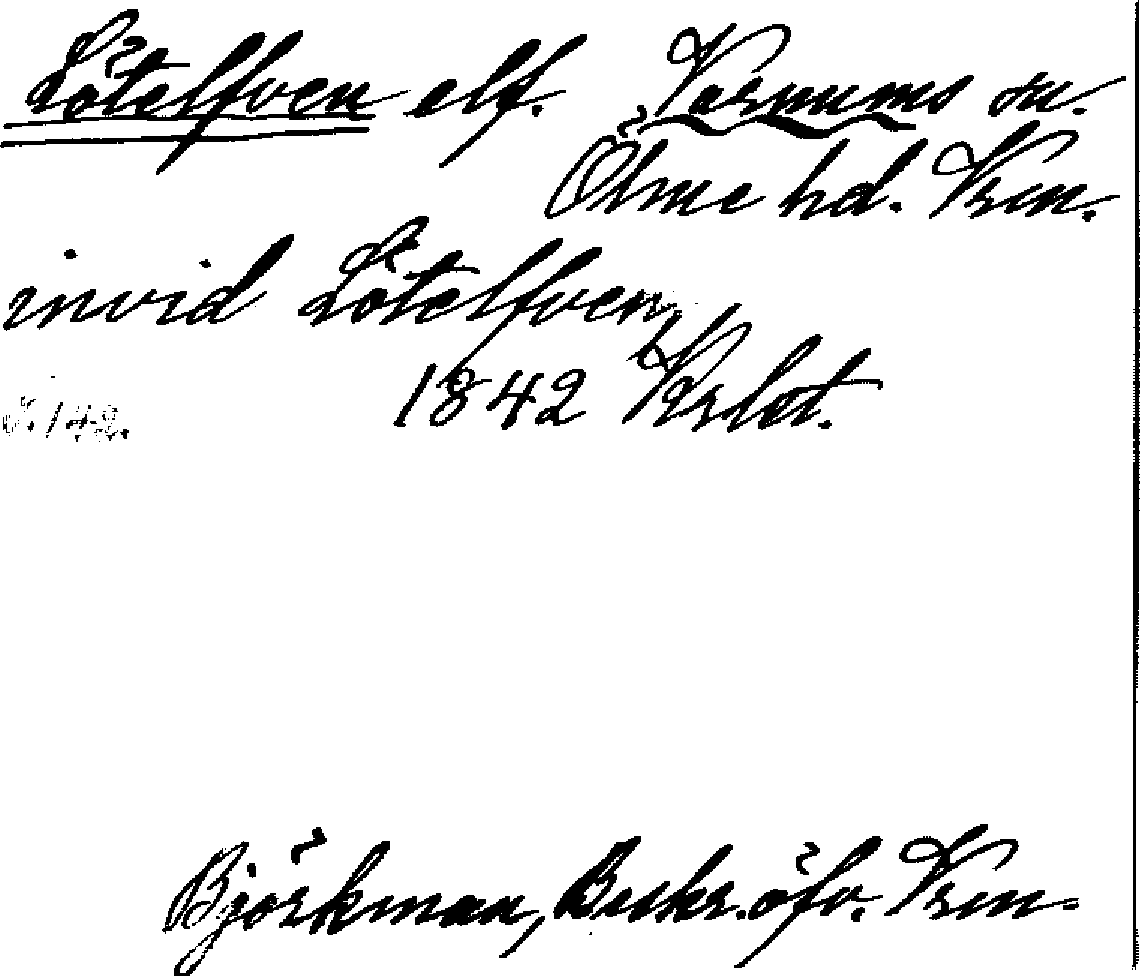 Lötelfven elf. Varnums sn.
Ölme hd. Vrm.
invid Lötelfven,
1842 Krlst.
S. 142.
Björkman, Beskr. öfv. Vrm.